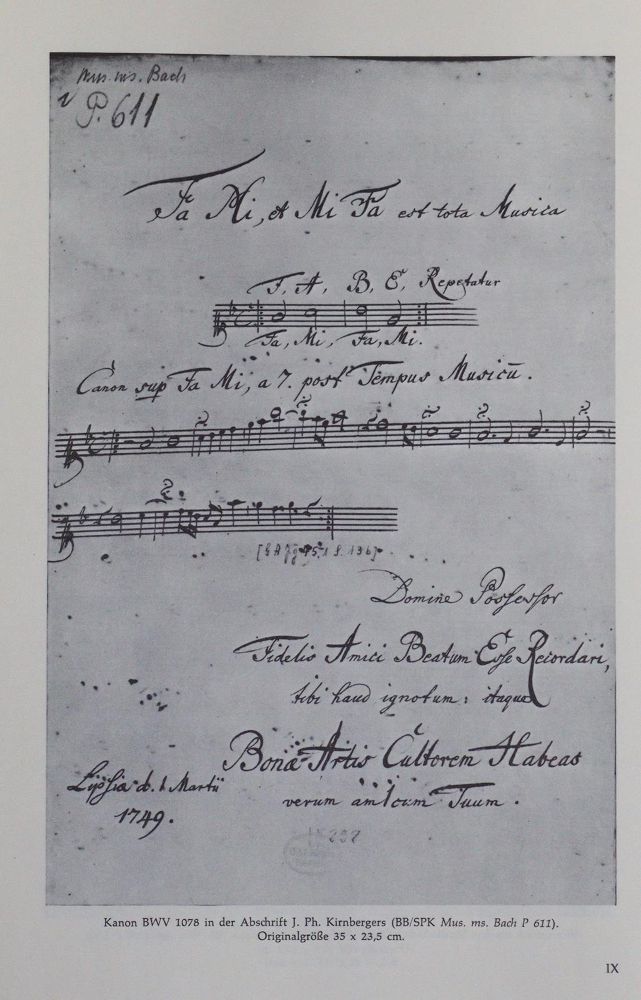 Mus. ms. Bach
P. 611
Fa Mi, et Mi Fa est tota Musica
F, A, B, E, Repetatur
Fa, Mi, Fa, Mi.
Canon sup Fa Mi, a 7. post Tempus Musicū.
Domine Possessor
Fidelis Amici Beatum Esse Recordari,
tibi haud ignotum: itaque
Bonæ Artis Cultorem Habeas
Lipsiæ d. 1 Martii
verum amIcum Tuum.
1749.
Kanon BWV 1078 in der Abschrift J. Ph. Kirnbergers (BB/SPK Mus. ms. Bach P 611).
Originalgröße 35 x 23,5 cm.
IX